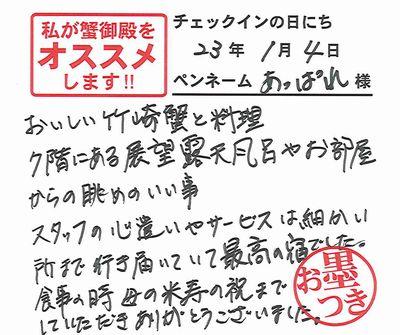 私が蟹御殿を
オススメ
します!!
チェックインの日にち
23年 1月 4日
ペンネーム あっぱれ 様
おいしい竹崎蟹と料理
7階にある展望露天風呂やお部屋
からの眺めのいい事
スタッフの心遣いやサービスは細かい
所まで行き届いていて最高の宿でした。
食事の時 母の米寿の祝まで
していただきありがとうございました。
お墨
つき